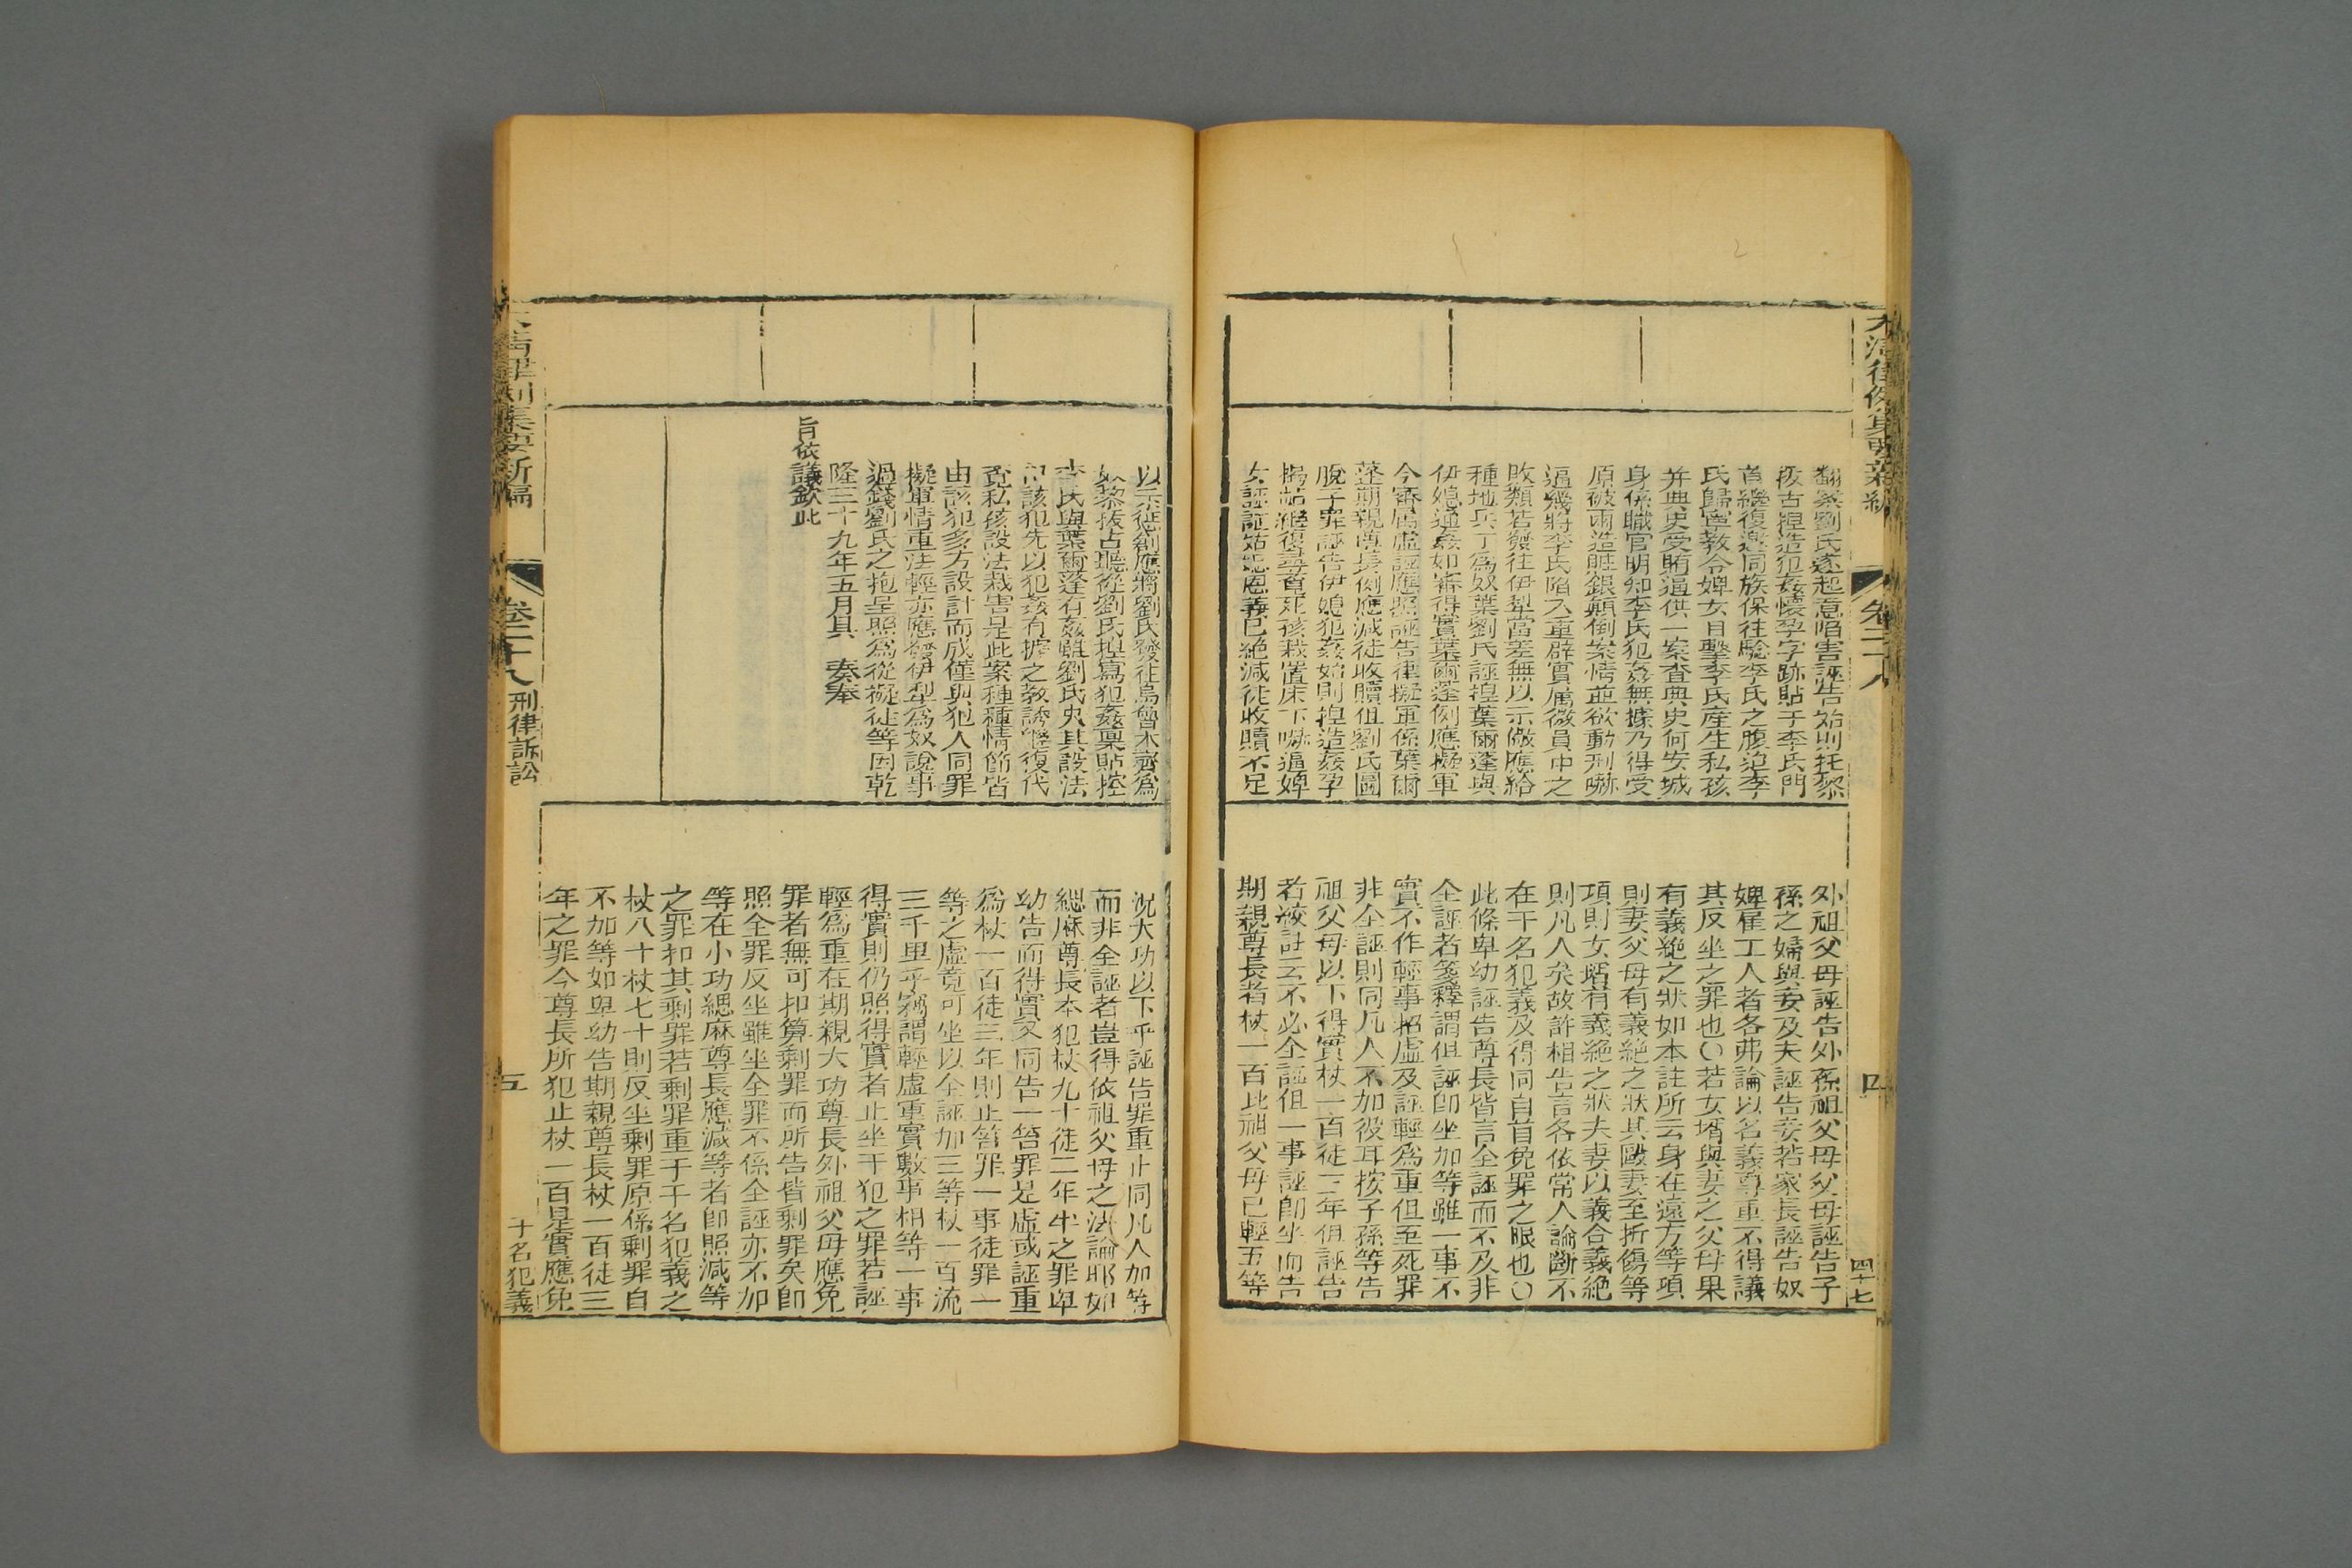 大清律例集要新編
卷二十八
四
四十七
翻案劉氏遂起意陷害誣告始則托黎
拔古捏造犯姦懷孕字跡貼于李氏門
首繼復邀同族保往驗李氏之腹迨李
氏歸寧教令婢女目擊李氏產生私孩
并典史受賄逼供一案查典史何安城
身係職官明知李氏犯姦無據乃得受
原被兩造賍銀顛倒案情並欲動刑嚇
逼幾將李氏陷入重辟實屬微員中之
敗類若發往伊犁當差無以示儆應給
種地兵丁為奴葉劉氏誣捏葉爾蓬與
伊媳通姦如審得實葉爾蓬例應擬軍
今審屬虛誣應照誣告律擬軍係葉爾
蓬期親尊長例應減徒收贖但劉氏圖
脫子罪誣告伊媳犯姦始則捏造姦孕
揭帖繼復尋覓死孩栽置床下嚇逼婢
女誣証姑媳恩義已絕減徒收贖不足
外祖父母誣告外孫祖父母父母誣告子
孫之婦與妾及夫誣告妾若家長誣告奴
婢雇工人者各弗論以名義尊重不得議
其反坐之罪也〇若女壻與妻之父母果
有義絕之狀如本註所云身在遠方等項
則妻父母有義絕之狀其毆妻至折傷等
項則女壻有義絕之狀夫妻以義合義絕
則凡人矣故許相告言各依常人論斷不
在干名犯義及得同自首免罪之限也〇
此條卑幼誣告尊長皆言全誣而不及非
全誣者箋釋謂但誣卽坐加等雖一事不
實不作輕事招虛及誣輕為重但至死罪
非全誣則同凡人不加役耳按子孫等告
祖父母以下得實杖一百徒三年但誣告
者絞註云不必全誣但一事誣卽坐而告
期親尊長者杖一百此祖父母已輕五等
以示懲創應將劉氏發往烏魯木齊為
奴黎拔古聽從劉氏捏寫犯姦稟貼控
李氏與葉爾蓬有姦雖劉氏央其設法
但該犯先以犯姦有據之教誘繼復代
覓私孩設法栽害是此案種種情節皆
由該犯多方設計而成僅與犯人同罪
擬軍情重法輕亦應發伊犁為奴說事
過錢劉氏之抱呈照為從擬徒等因乾
隆三十九年五月具 奏奉
旨依議欽此
況大功以下乎誣告罪重止同凡人加等
而非全誣者豈得依祖父母之法論耶如
緦麻尊長本犯杖九十徒二年半之罪卑
幼告而得實又同告一笞罪是虛或誣重
為杖一百徒三年則止笞罪一事徒罪一
等之虛竟可坐以全誣加三等杖一百流
三千里乎竊謂輕虛重實數事相等一事
得實則仍照得實者止坐干犯之罪若誣
輕為重在期親大功尊長外祖父母應免
罪者無可扣算剩罪而所告皆剩罪矣卽
照全罪反坐雖坐全罪不係全誣亦不加
等在小功緦麻尊長應減等者卽照減等
之罪扣其剩罪若剩罪重于干名犯義之
杖八十杖七十則反坐剩罪原係剩罪自
不加等如卑幼告期親尊長杖一百徒三
年之罪今尊長所犯止杖一百是實應免
大清律例集要新編
卷二十八 刑律訴訟
五
干名犯義